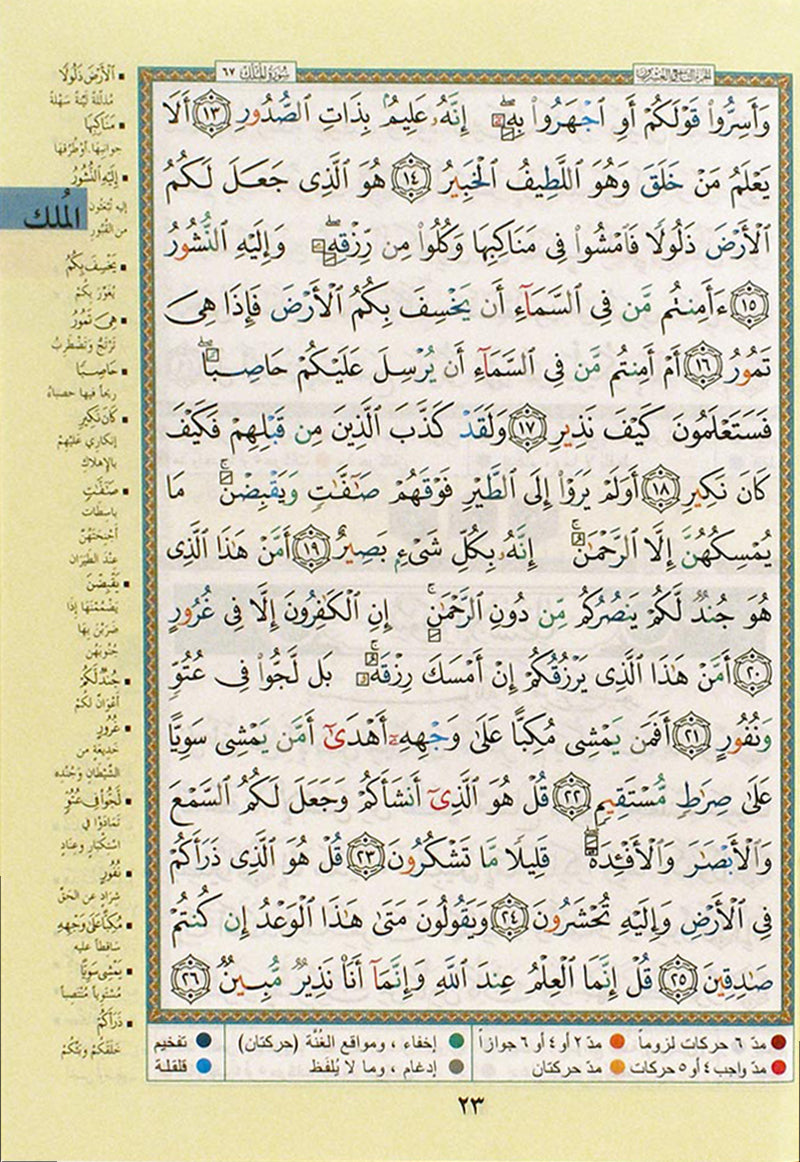 سُورَةُ المُلْكِ ٦٧
الجزء التاسع والعشرون
وَأَسِرُّوا۟ قَوْلَكُمْ أَوِ ٱجْهَرُوا۟ بِهِۦٓ ۖ إِنَّهُۥ عَلِيمٌۢ بِذَاتِ ٱلصُّدُورِ ﴿١٣﴾ أَلَا
يَعْلَمُ مَنْ خَلَقَ وَهُوَ ٱللَّطِيفُ ٱلْخَبِيرُ ﴿١٤﴾ هُوَ ٱلَّذِى جَعَلَ لَكُمُ
ٱلْأَرْضَ ذَلُولًا فَٱمْشُوا۟ فِى مَنَاكِبِهَا وَكُلُوا۟ مِن رِّزْقِهِۦ ۖ وَإِلَيْهِ ٱلنُّشُورُ
﴿١٥﴾ ءَأَمِنتُم مَّن فِى ٱلسَّمَآءِ أَن يَخْسِفَ بِكُمُ ٱلْأَرْضَ فَإِذَا هِىَ
تَمُورُ ﴿١٦﴾ أَمْ أَمِنتُم مَّن فِى ٱلسَّمَآءِ أَن يُرْسِلَ عَلَيْكُمْ حَاصِبًا ۖ
فَسَتَعْلَمُونَ كَيْفَ نَذِيرِ ﴿١٧﴾ وَلَقَدْ كَذَّبَ ٱلَّذِينَ مِن قَبْلِهِمْ فَكَيْفَ
كَانَ نَكِيرِ ﴿١٨﴾ أَوَلَمْ يَرَوْا۟ إِلَى ٱلطَّيْرِ فَوْقَهُمْ صَٰٓفَّٰتٍ وَيَقْبِضْنَ ۚ مَا
يُمْسِكُهُنَّ إِلَّا ٱلرَّحْمَٰنُ ۚ إِنَّهُۥ بِكُلِّ شَىْءٍۭ بَصِيرٌ ﴿١٩﴾ أَمَّنْ هَٰذَا ٱلَّذِى
هُوَ جُندٌ لَّكُمْ يَنصُرُكُم مِّن دُونِ ٱلرَّحْمَٰنِ ۚ إِنِ ٱلْكَٰفِرُونَ إِلَّا فِى غُرُورٍ
﴿٢٠﴾ أَمَّنْ هَٰذَا ٱلَّذِى يَرْزُقُكُمْ إِنْ أَمْسَكَ رِزْقَهُۥ ۚ بَل لَّجُّوا۟ فِى عُتُوٍّ
وَنُفُورٍ ﴿٢١﴾ أَفَمَن يَمْشِى مُكِبًّا عَلَىٰ وَجْهِهِۦٓ أَهْدَىٰٓ أَمَّن يَمْشِى سَوِيًّا
عَلَىٰ صِرَٰطٍ مُّسْتَقِيمٍ ﴿٢٢﴾ قُلْ هُوَ ٱلَّذِىٓ أَنشَأَكُمْ وَجَعَلَ لَكُمُ ٱلسَّمْعَ
وَٱلْأَبْصَٰرَ وَٱلْأَفْـِٔدَةَ ۖ قَلِيلًا مَّا تَشْكُرُونَ ﴿٢٣﴾ قُلْ هُوَ ٱلَّذِى ذَرَأَكُمْ
فِى ٱلْأَرْضِ وَإِلَيْهِ تُحْشَرُونَ ﴿٢٤﴾ وَيَقُولُونَ مَتَىٰ هَٰذَا ٱلْوَعْدُ إِن كُنتُمْ
صَٰدِقِينَ ﴿٢٥﴾ قُلْ إِنَّمَا ٱلْعِلْمُ عِندَ ٱللَّهِ وَإِنَّمَآ أَنَا۠ نَذِيرٌ مُّبِينٌ ﴿٢٦﴾
▪ ٱلْأَرْضَ ذَلُولًا
مُذَلَّلَةً لَيِّنَةً سَهْلَةً
▪ مَنَاكِبِهَا
جوانبها، أو طُرُقها
▪ إِلَيْهِ النُّشُورُ
إليه تُبْعَثُون
من القُبُورِ
المُلك
▪ يَخْسِفَ بِكُمُ
يُغَوِّرَ بِكُمْ
▪ هِىَ تَمُورُ
تَرْتَجُّ وَتَضْطَرِبُ
▪ حَاصِبًا
ريحاً فيها حصباءُ
▪ كَانَ نَكِيرِ
إنكاري عَلَيْهِمْ
بالإهلاكِ
▪ صَٰٓفَّٰتٍ
باسطات
أَجْنِحَتَهُنَّ
عِنْدَ الطَّيَران
▪ يَقْبِضْنَ
يَضْمُمْنَهَا إذَا
ضَرَبْنَ بِهَا
جُنُوبَهُن
▪ جُندٌ لَّكُمْ
أعْوَانٌ لكُمْ
▪ غُرُورٍ
خديعةٍ من
الشَّيْطان وَجُنْدِه
▪ لَّجُّوا فِى عُتُوٍّ
تَمَادَوْا في
اسْتِكْبَارٍ وعنادٍ
▪ نُفُورٍ
شِرَادٍ عن الحَقِّ
▪ مُكِبًّا عَلَىٰ وَجْهِهِ
ساقطاً عليه
▪ يَمْشِى سَوِيًّا
مُسْتَوياً مُنْتَصِباً
▪ ذَرَأَكُمْ
خَلَقَكُمْ وبَثَّكُمْ
مدّ ٦ حركات لزوماً ● مدّ ٢ أو ٤ أو ٦ جوازاً ● إخفاء ، ومواقع الغُنَّة (حركتان) ● تفخيم
مدّ واجب ٤ أو ٥ حركات ● مدّ حركتان ● إدغام ، وما لا يُلفَظ ● قلقلة
٢٣